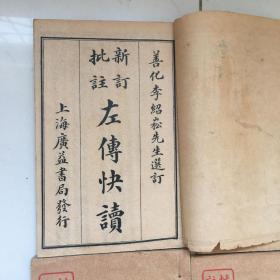 善化李紹崧先生選訂
新訂
批註
左傳快讀
上海廣益書局發行